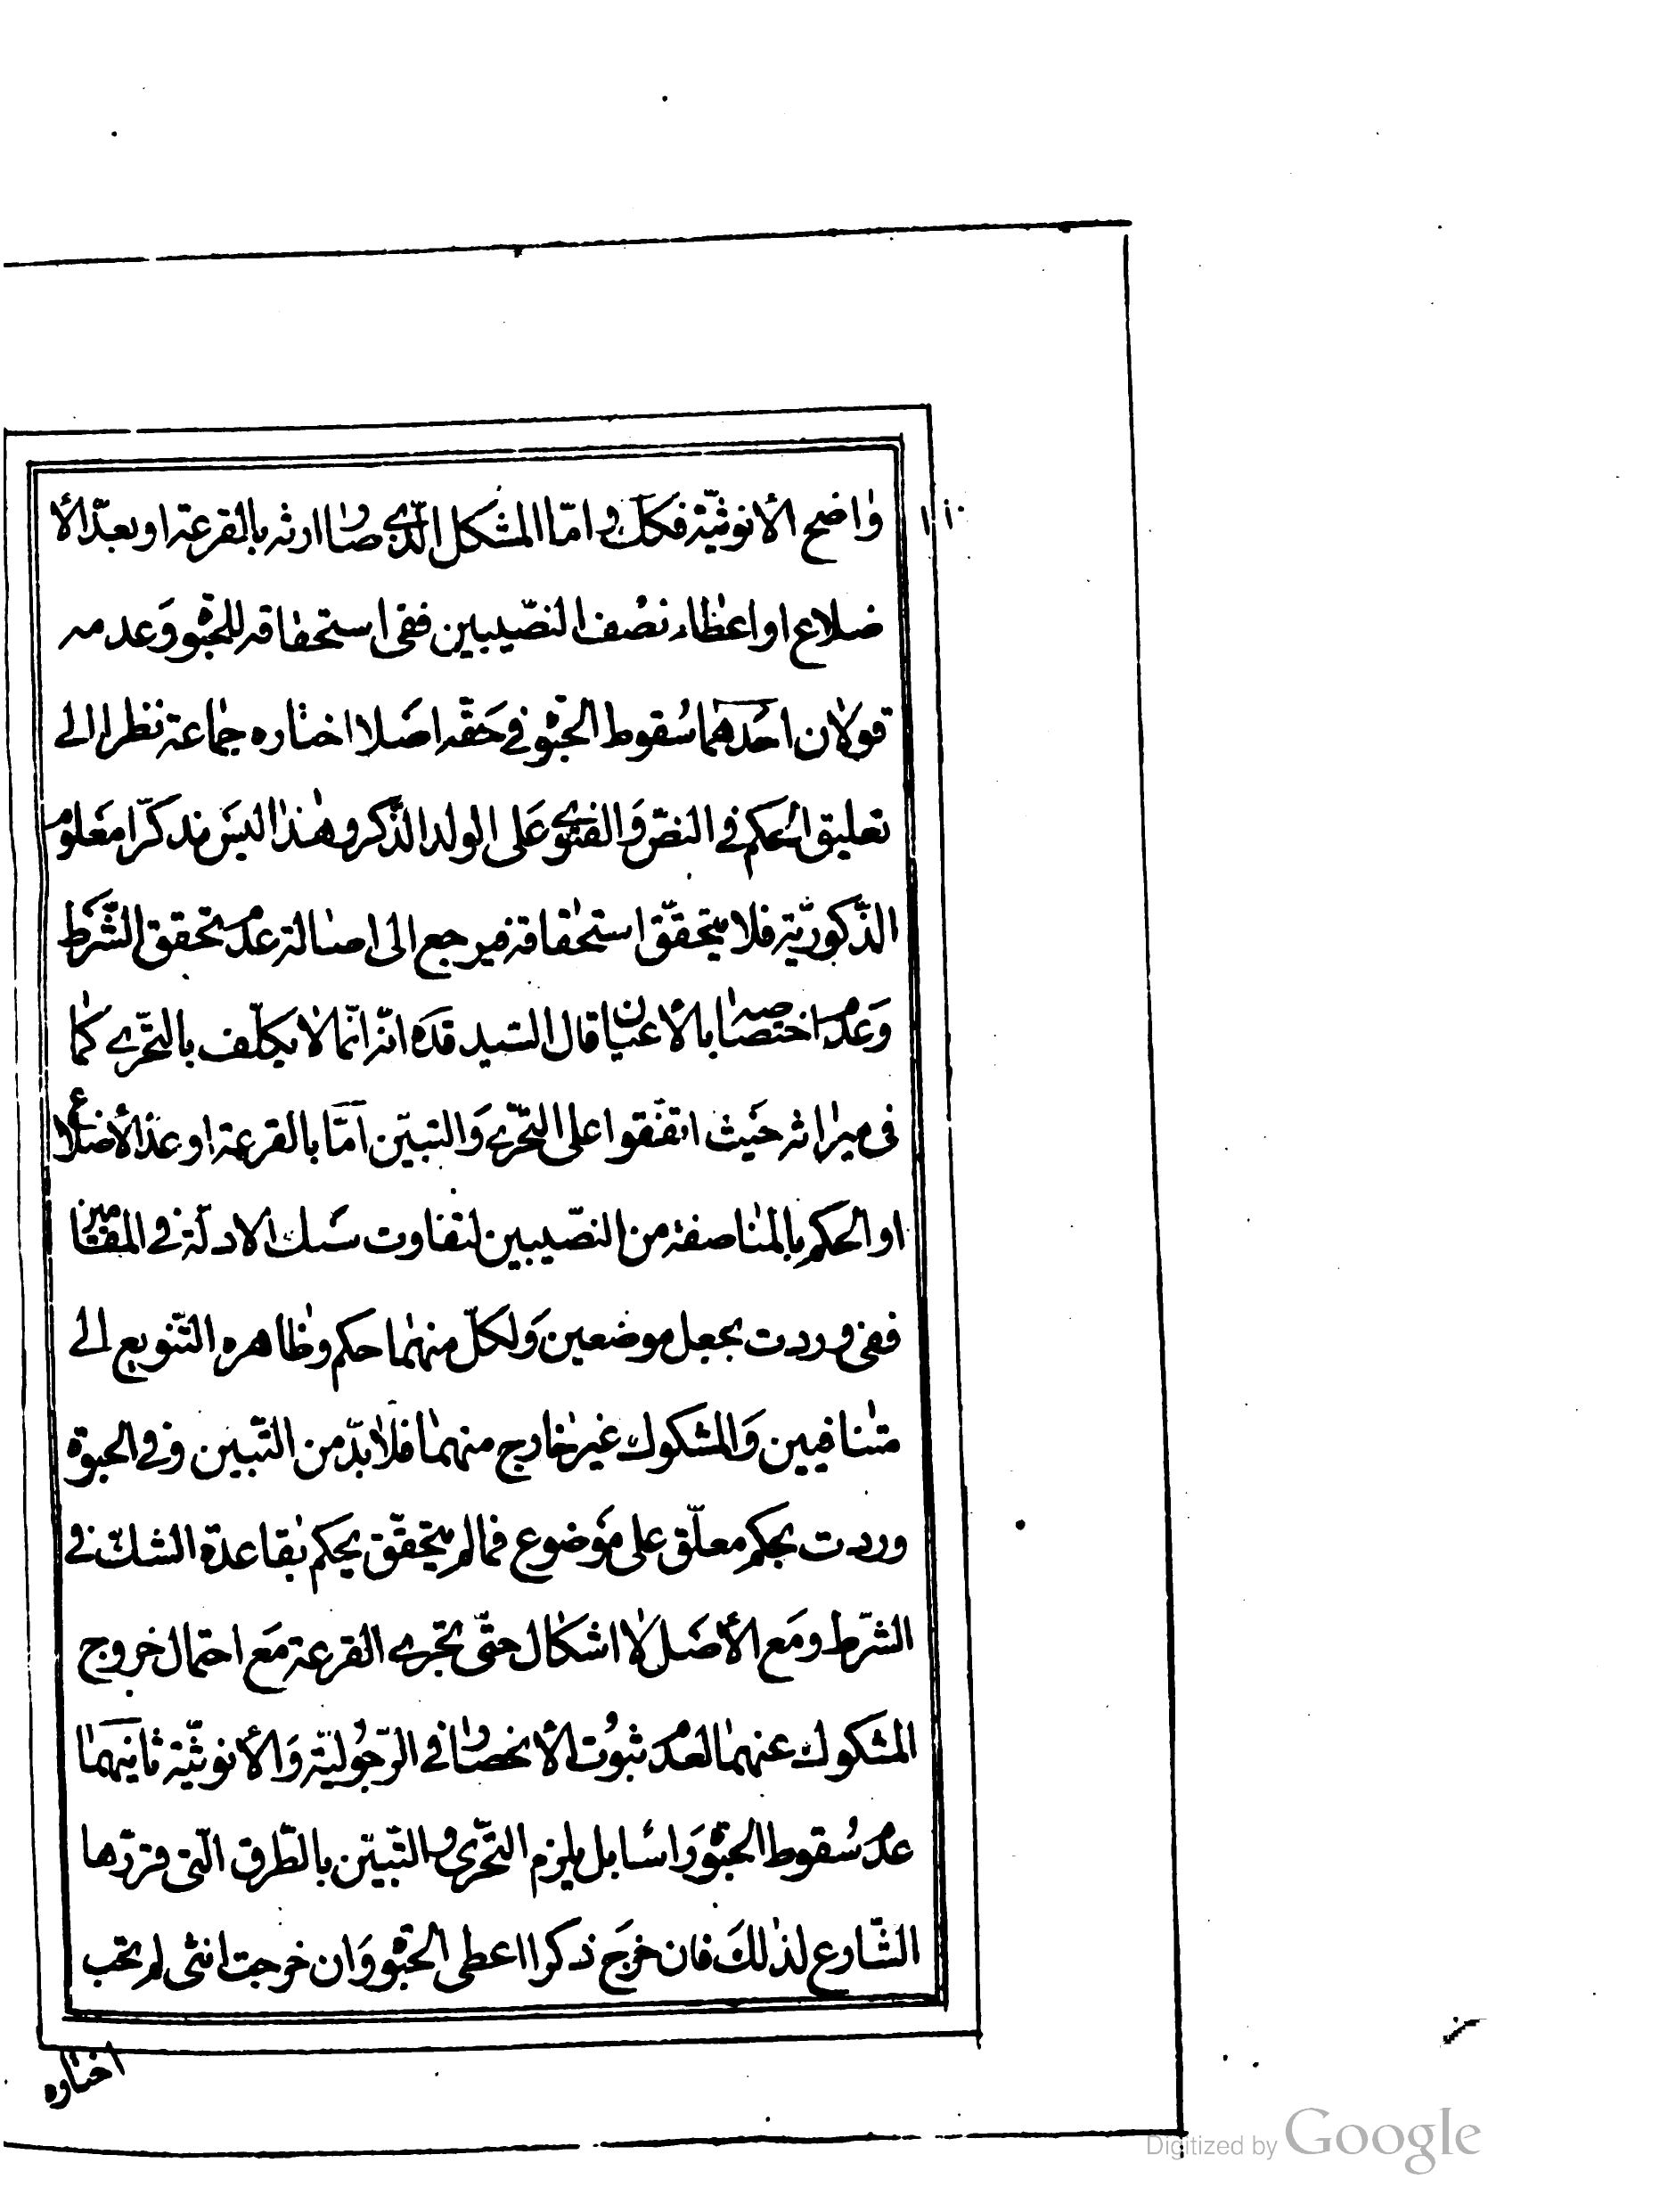 واضح الأنوثيّة فكك و امّا المشكل الّذي صار ارثه بالقرعة او بعدّ الأ
ضلاع او اعطاء نصف النصّيبين ففى استحقاقه للحبو وعدمه
قولان احدهما سقوط الحبو في حقّه اصلا اختاره جماعة نظرا الى
تعليق الحكم في النصّ والفتوى على الولد الذّكر و هذا ليس بذكر معلوم
الذّكوريّة فلا يتحقّق استحقاقه فيرجع الى اصالة عدم تحقق الشّرط
وعدم اختصاصه بالأعيان قال السّيد قده انّه انّما لا يكلّف بالتّحرّي كما
في ميراثه حيث اتّفقوا على التّحرّي والتبيّن امّا بالقرعة او عدّ الأضلاع
او الحكم بالمناصفة من النصّيبين لتفاوت سلك الادلّة في المقامين
ففى وردت بجعل موضعين ولكلّ منهما حكم وظاهره التّنويع الى
متنافيين والمشكوك غير خارج منهما فلا بدّ من التّبين وفي الحبوة
وردت بحكم معلّق على موضوع فما لم يتحقّق يحكم بقاعدة الشكّ في
الشّرط ومع الأصل لا اشكال حتّى تجري القرعة مع احتمال خروج
المشكوك عنهما لعدم ثبوت الأنحصار في الرّجوليّة والأنوثيّة ثانيهما
عدم سقوط الحبو راسا بل يلزم التّحرّى والتّبيّن بالطّرق الّتي قرّرها
الشّارع لذلك فان خرج ذكرا اعطى الحبو وان خرجت انثى لم تحب
اختاره
Digitized by Google